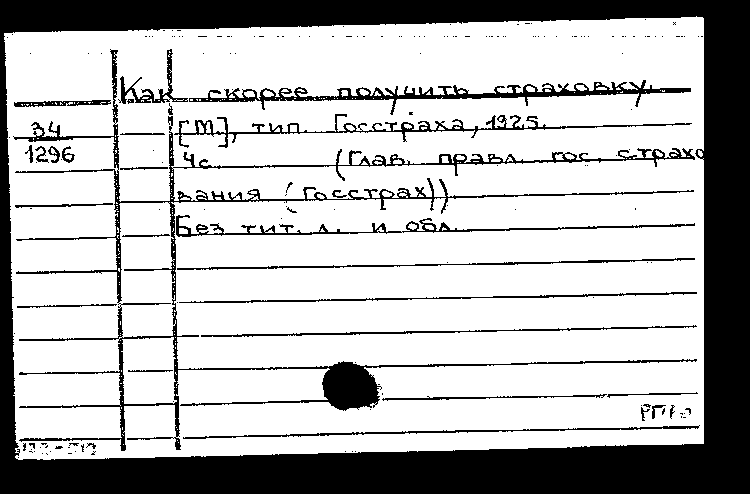 Как скорее получить страховку.
34
1296
[М.], тип. Госстраха, 1925.
4с. (Глав. правл. гос. страхо
вания (Госстрах)).
Без тит. л. и обл.